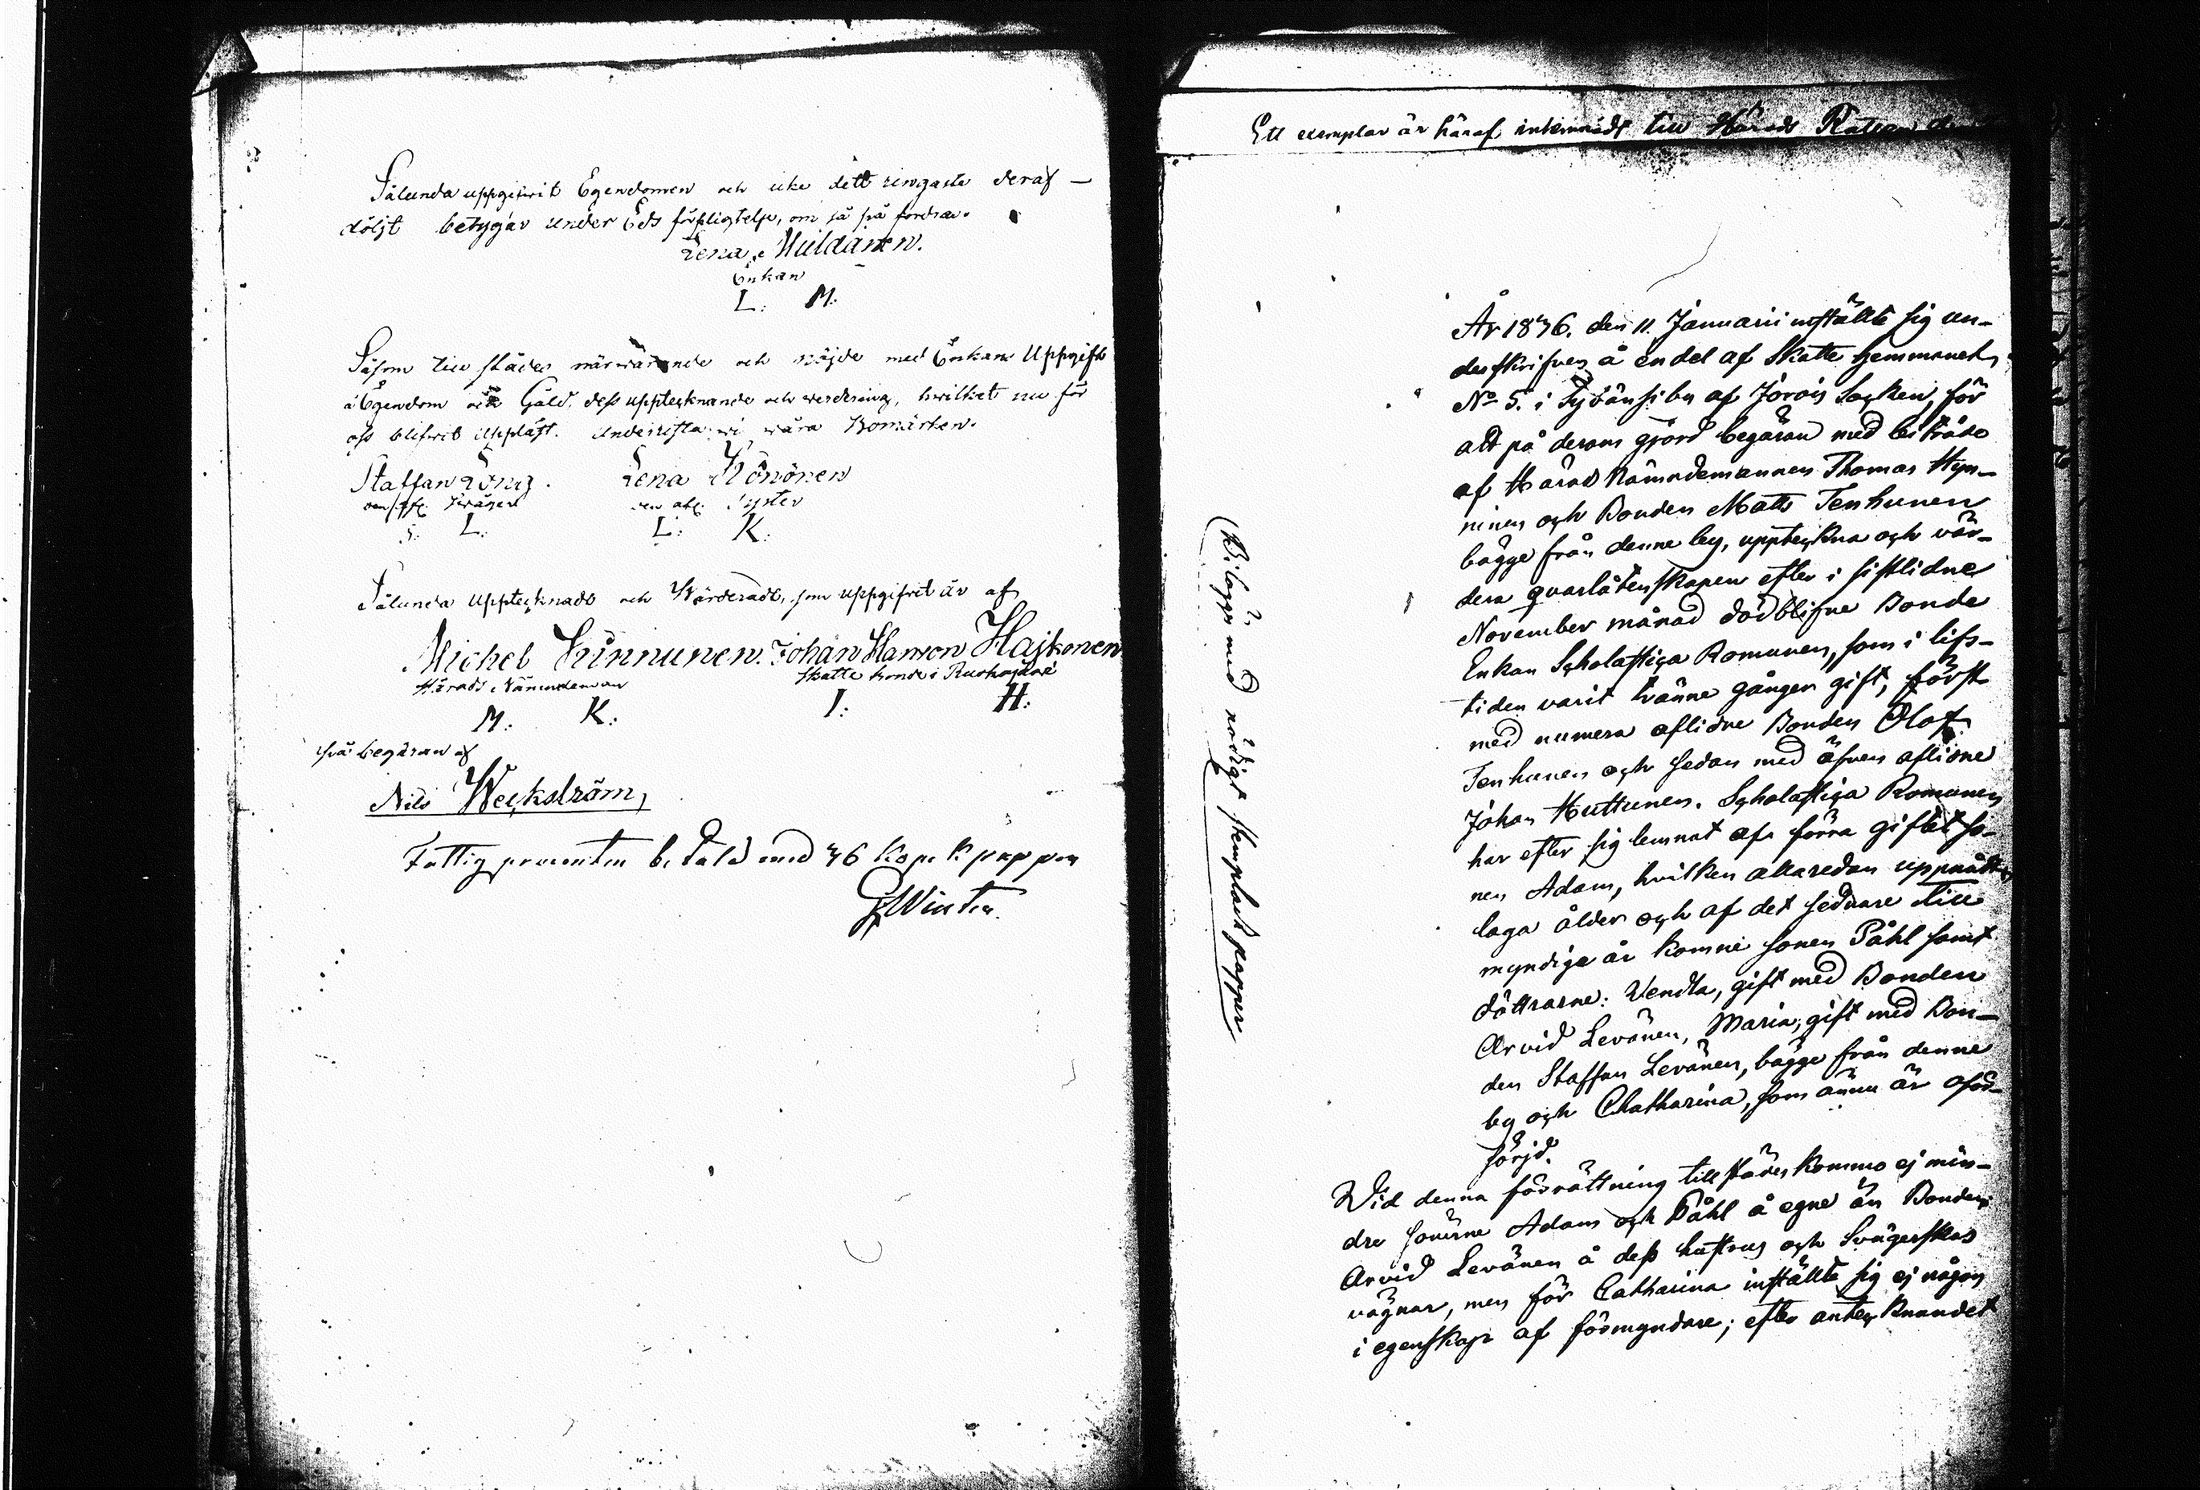 Sålunda uppgifwit Egendomen och icke dett ringaste deraf —
döljt betygar under Eds förpligtelse, om så på fordras.
Lena Muldainen.
Enkan
L: M:
Såsom till städes närwarande och nöjde med Enkans Uppgift
å Egendom och Gäld, dess upptecknande och werdering, hwilket nu för
oss blifwit Uppläst. Underrista wi wåra Bomärken.
Staffan Löng. Lena Könönen
den afl. Swåger den afl. Syster
S: L: L: K:
Sålunda Upptecknadt och Wärderadt, som uppgifvit är af
Michel Kinnunen. Johan Hanson Hajkonen
Härads Nämndeman Skatte bonde i
M: K: I: H:
på begäran af
Nils Weckström,
Fattig procenten betald med 46 Kop. K papper
Winter.
Ett exemplar är häraf inlemnadt till Härads Rätten
(Bilägges med nödigt stemplat papper
År 1846. den 11. Januarii inställte sig un-
derskrifven å en del af Skatte hemmanet
No 5. i by af Jorois Socken, för
att på derom gjord begäran med biträde
af Härads Nämndemannen Thomas Hyn-
ninen och Bonden Matts Tenhunen
bägge från denne by, uppteckna och vär-
dera qvarlåtenskapen efter i sistlidne
November månad död blifne Bonde
Enkan Scholastica Romunen, som i lifs-
tiden varit tvänne gånger gift, först
med numera aflidne Bonden Olof
Tenhunen och sedan med äfven aflidne
Johan Huttunen. Scholastica Romunen
har efter sig lemnat af förra giftet so-
nen Adam, hvilken allaredan uppnått
laga ålder och af det sednare till
myndiga år komne sonen Påhl samt
döttrarne: Vendla, gift med Bonden
Arvid Levänen, Maria, gift med Bon-
den Staffan Levänen, bägge från denne
by och Chatharina, som ännu är oför-
sörjd.
Wid denna förrättning tillstädes kommo ej min-
dre sönerne Adam och Påhl å egne än Bonden
Arvid Levänen å dess hustrus och Svägerskas
vägnar, men för Catharina inställte sig ej någon
i egenskap af förmyndare; efter antecknandet